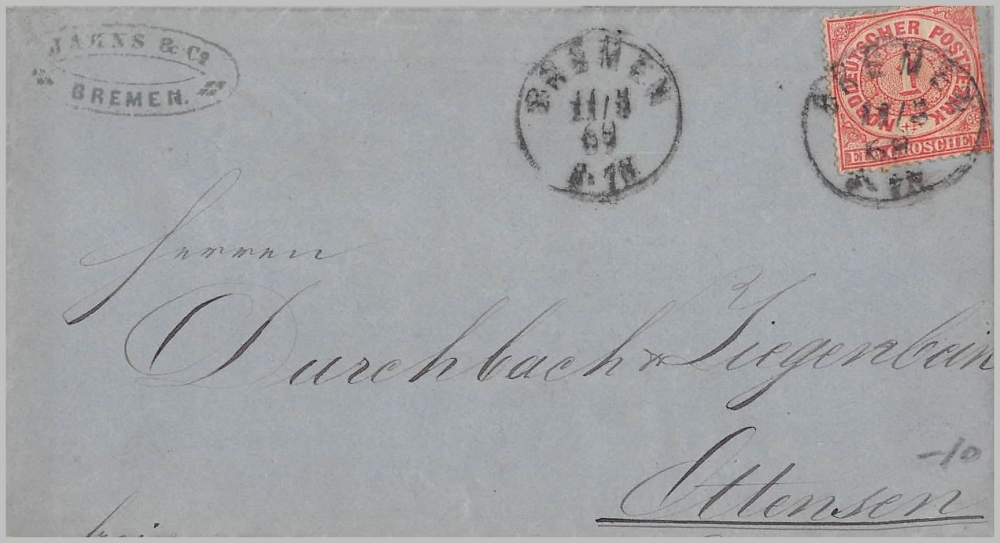 JAHNS & Co
BREMEN.
BREMEN
11/3
69
6-7N
NORDDEUTSCHER POSTBEZIRK
1
EIN GROSCHEN
BREMEN
11/3
69
Herren
Durchbach & Ziegenbein
-10
Ottensen
frei